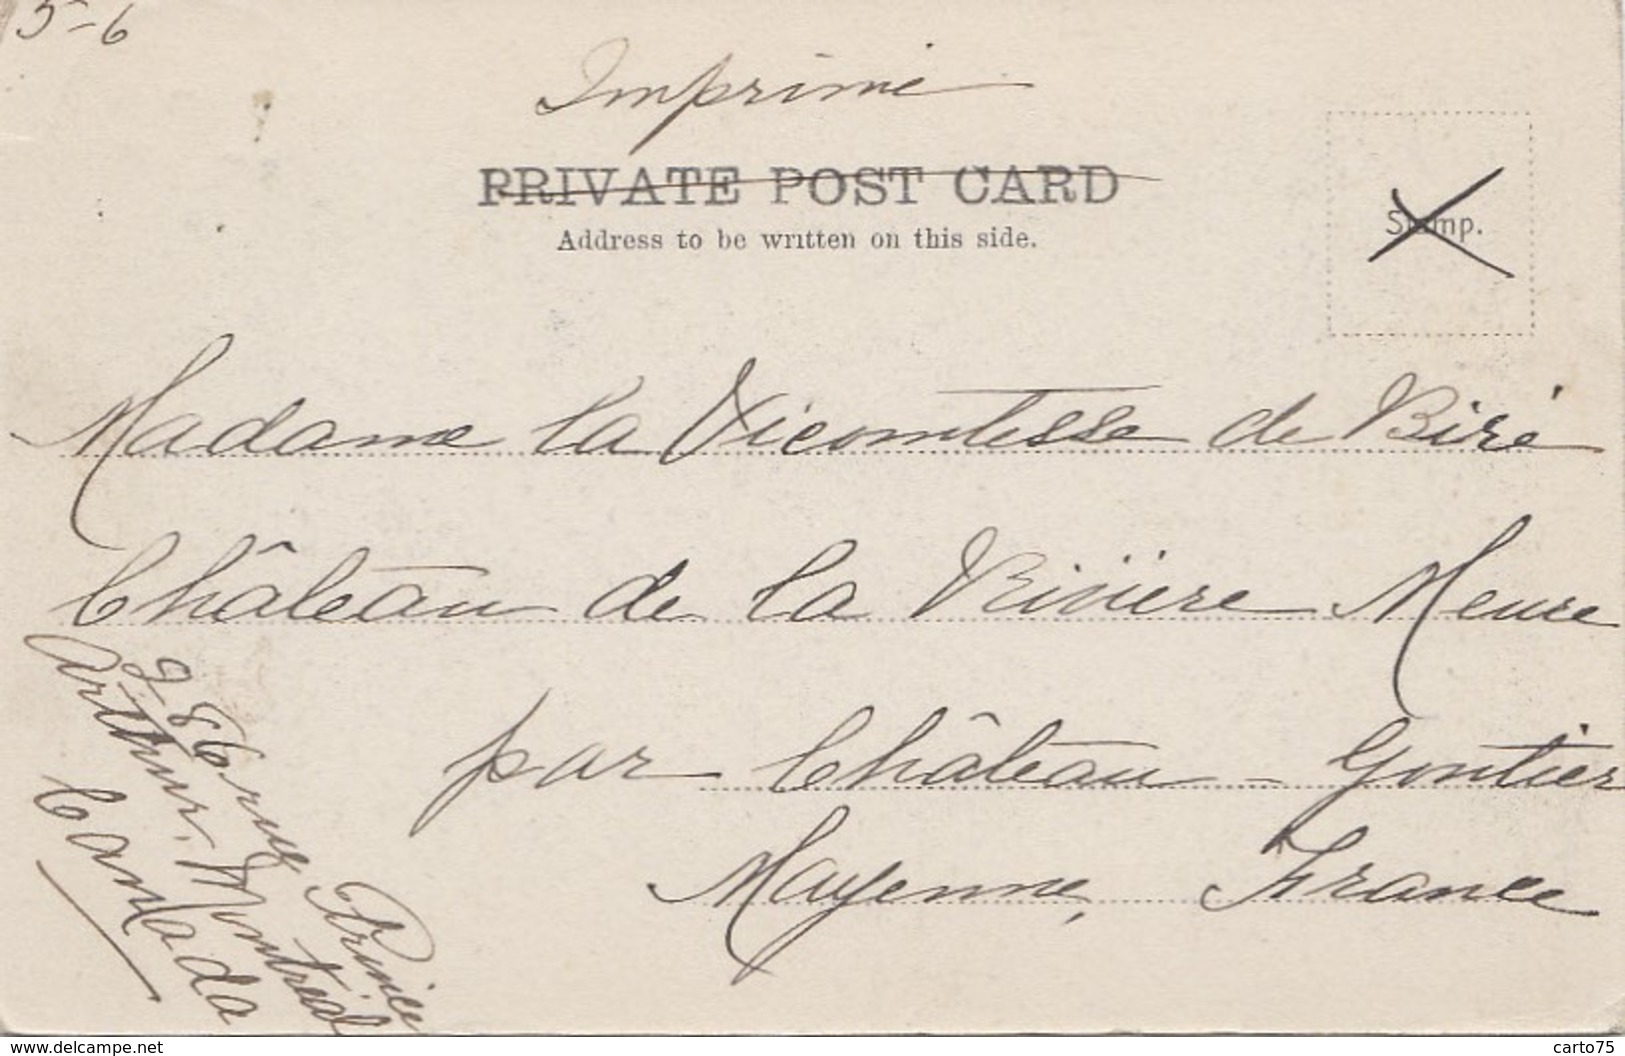 5-6
Imprimé
PRIVATE POST CARD
Address to be written on this side.
Stamp.
Madame la Vicomtesse de Biré
Château de la Rivière Meure
par Château-Gontier
Mayenne, France
986 rue Prince
Arthur. Montréal
Canada
www.delcampe.net
carto75